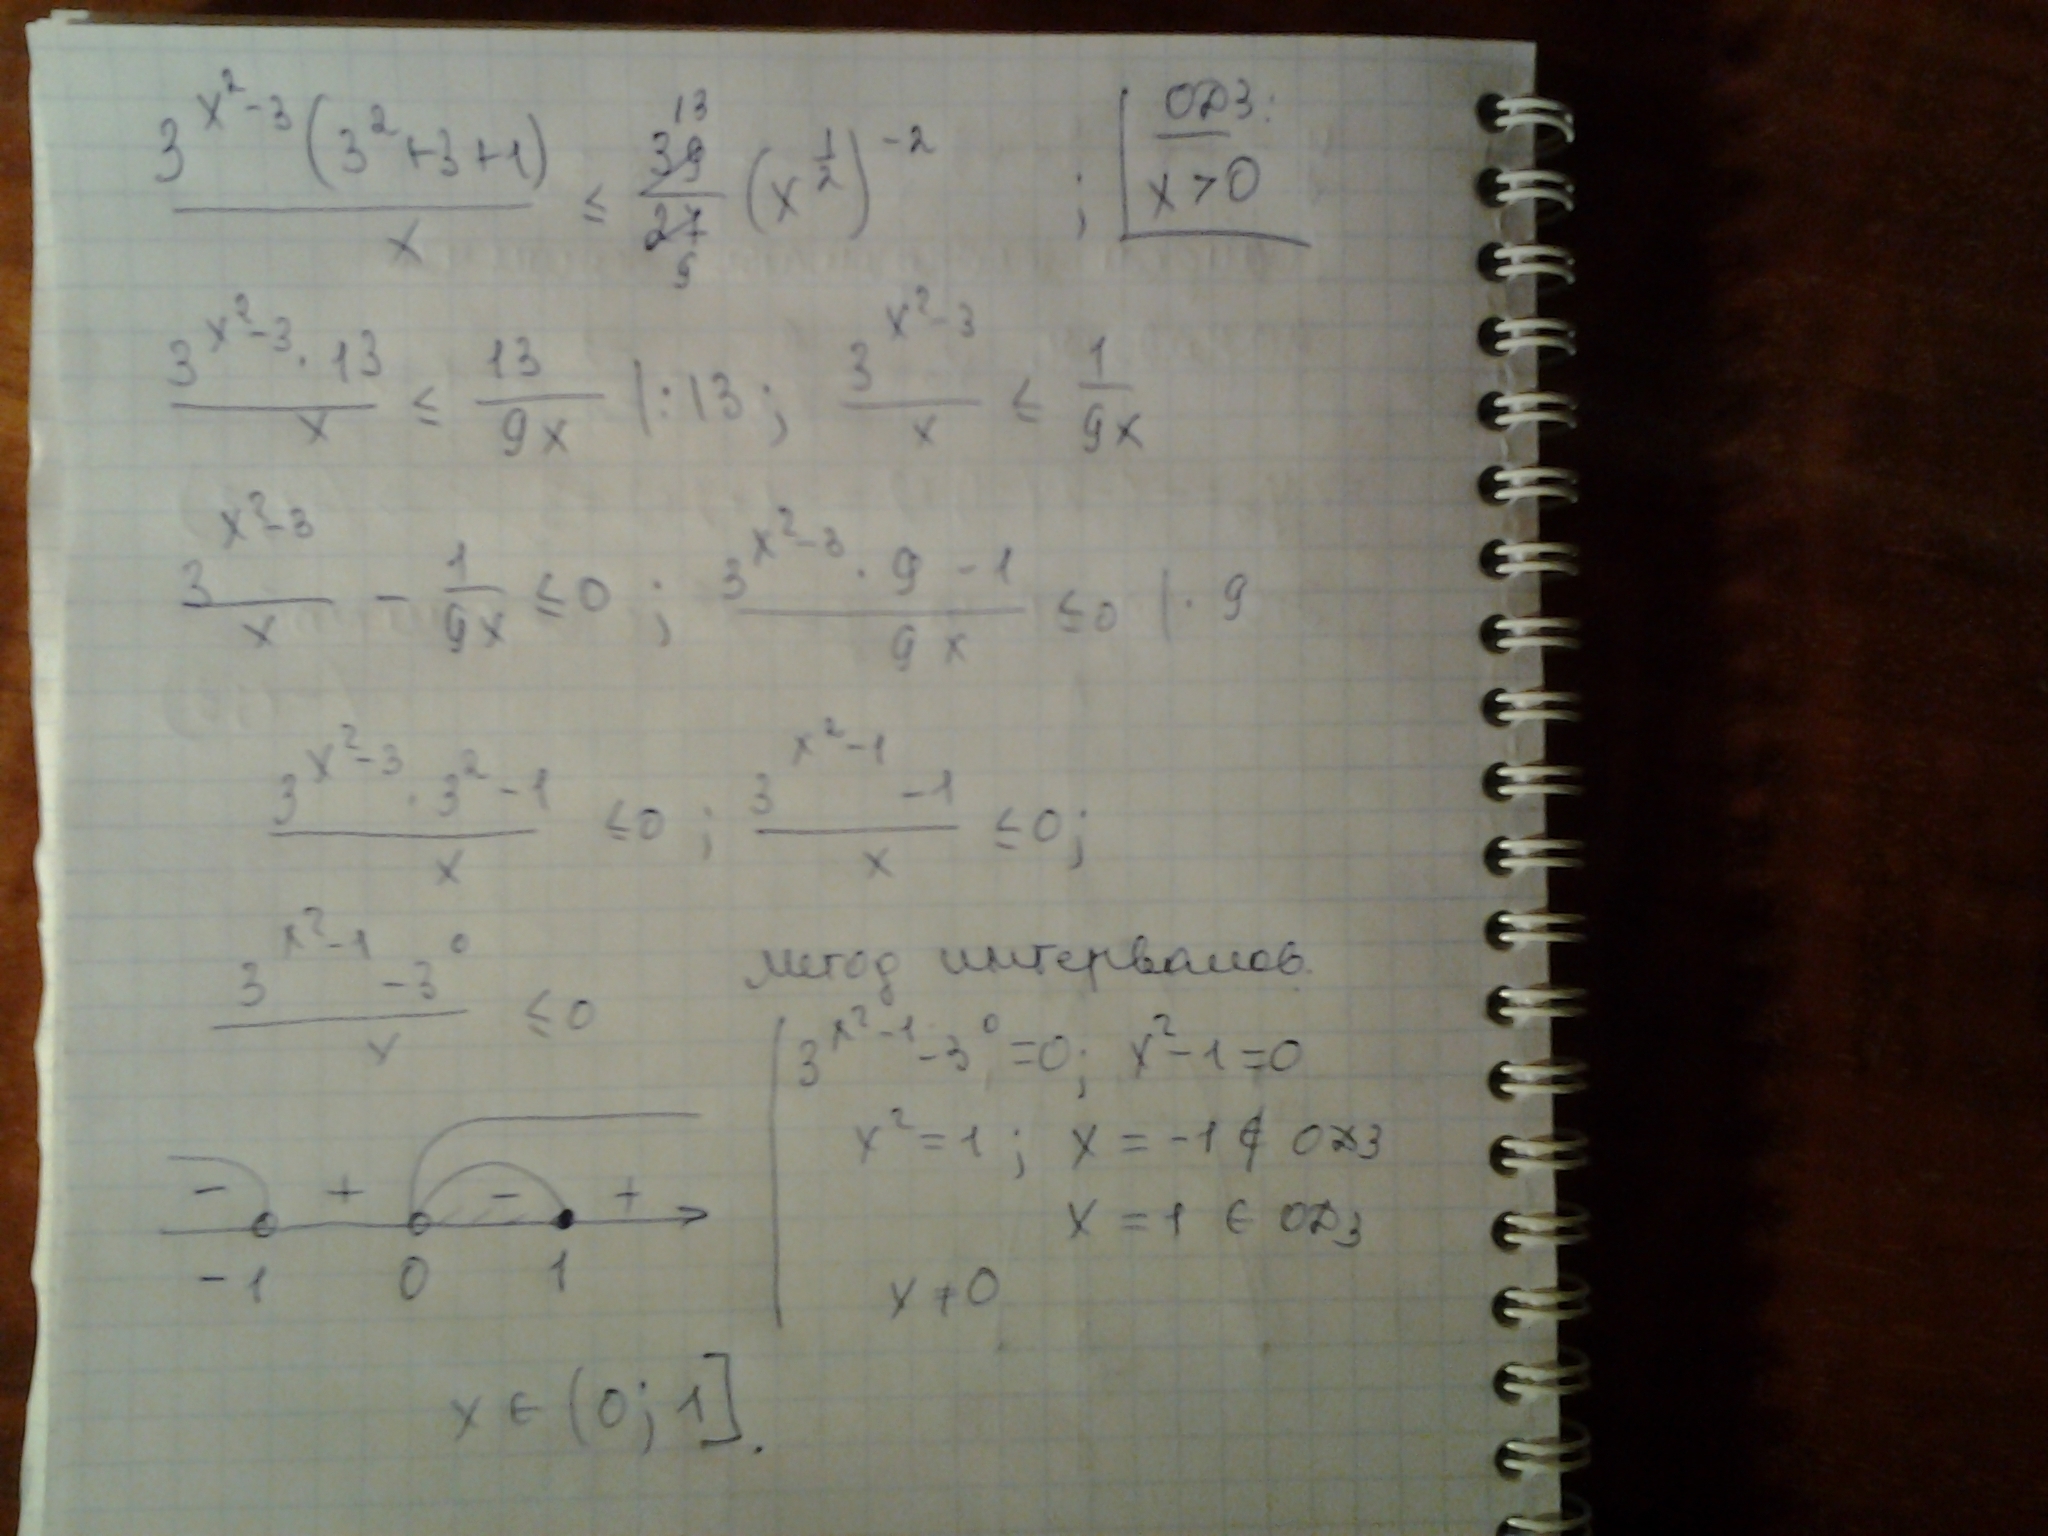 3^{x^2-3}(3^2+3+1)/x ≤ 39/27 (x^{1/2})^{-2} ; ОДЗ: x>0
13
9
3^{x^2-3}·13/x ≤ 13/9x |:13; 3^{x^2-3}/x ≤ 1/9x
3^{x^2-3}/x - 1/9x ≤0 ; 3^{x^2-3}·9-1/9x ≤0 |·9
3^{x^2-3}·3^2-1/x ≤0 ; 3^{x^2-1}-1/x ≤0;
3^{x^2-1}-3^0/x ≤0
метод интервалов.
3^{x^2-1}-3^0=0; x^2-1=0
x^2=1; x=-1∉ ОДЗ
x=1 ∈ ОДЗ
x≠0
- + - +
-1 0 1
x∈(0;1].